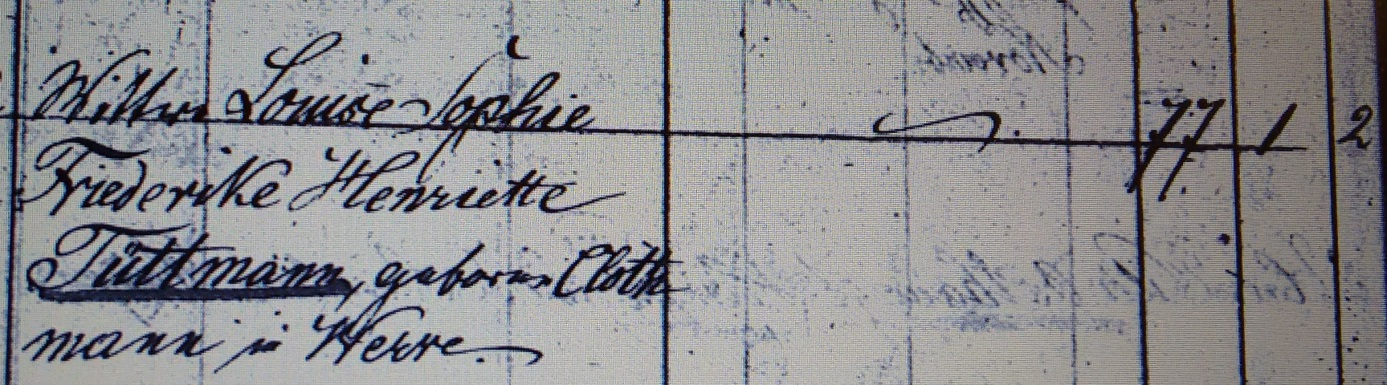 Wittwe Louise Sophie 77 1 2
Friederike Henriette
Tüttmann, geborene Cloth
mann in Werre.